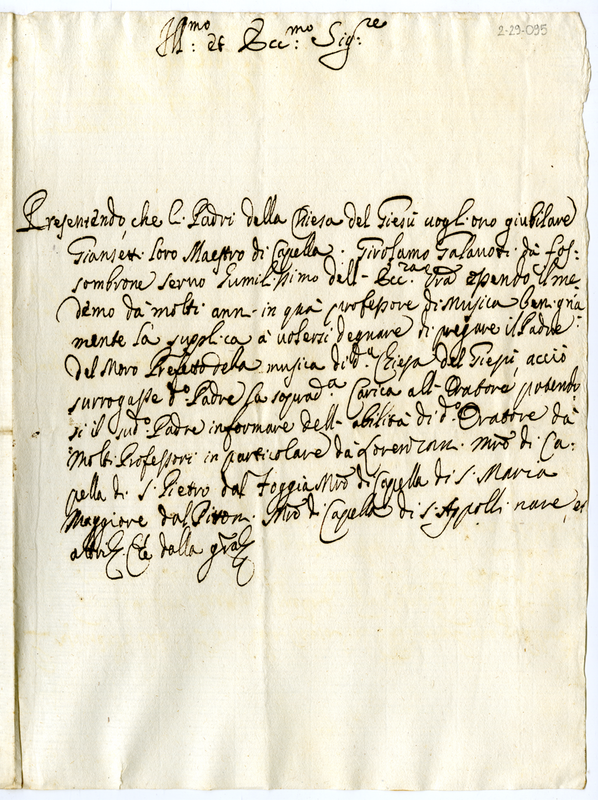 2-29-095
Ill.mo et Ecc.mo Sig.re
Presentendo, che li Padri della Chiesa del Giesù vogliono giubilare
Giansetti loro Maestro di Capella. Girolamo Galavotti da Fos:
sombrone servo humilissimo dell' Ecc.za V'ra essendo il me:
demo da molti anni in quà professore di Musica benigna:
mente la supplica à volersi degnare di pregare il Padre
del Moro Prefetto dela musica di d.a Chiesa del Giesù, acciò
surrogasse d.o Padre la soprad.a Carica all' Oratore, potendo:
si il sud.o Padre informare dell' abilità di d.o Oratore da
Molti Professori in particolare da Lorenzani Mro di Ca:
pella di S. Pietro dal Foggia Mro di Capella di S. Maria
Maggiore dal Pitoni Mro di Capella di S. Appollinare, et
altri. Che dalla gra